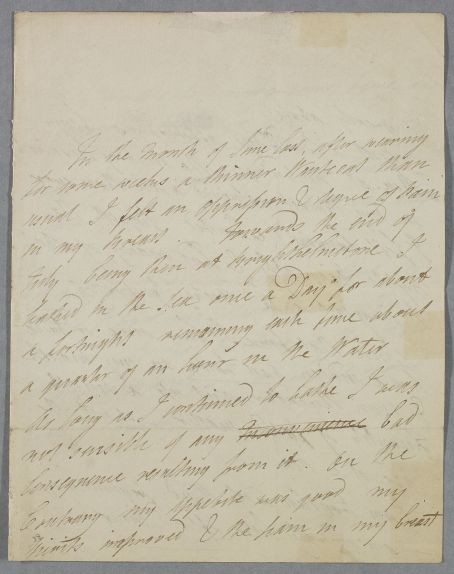 In the month of June last, after wearing
for some weeks a thinner Waistcoat than
usual I felt an oppression & degree of Pain
in my breast. Towards the end of
July being then at Brighthelmstone I
bathed in the Sea once a Day for about
a fortnight remaining each time about
a quarter of an hour in the Water
As long as I continued to bathe I was
not sensible of any Inconvenience bad
Consequence resulting from it. On the
Contrary my appetite was good my
Spirits improved & the pain in my breast